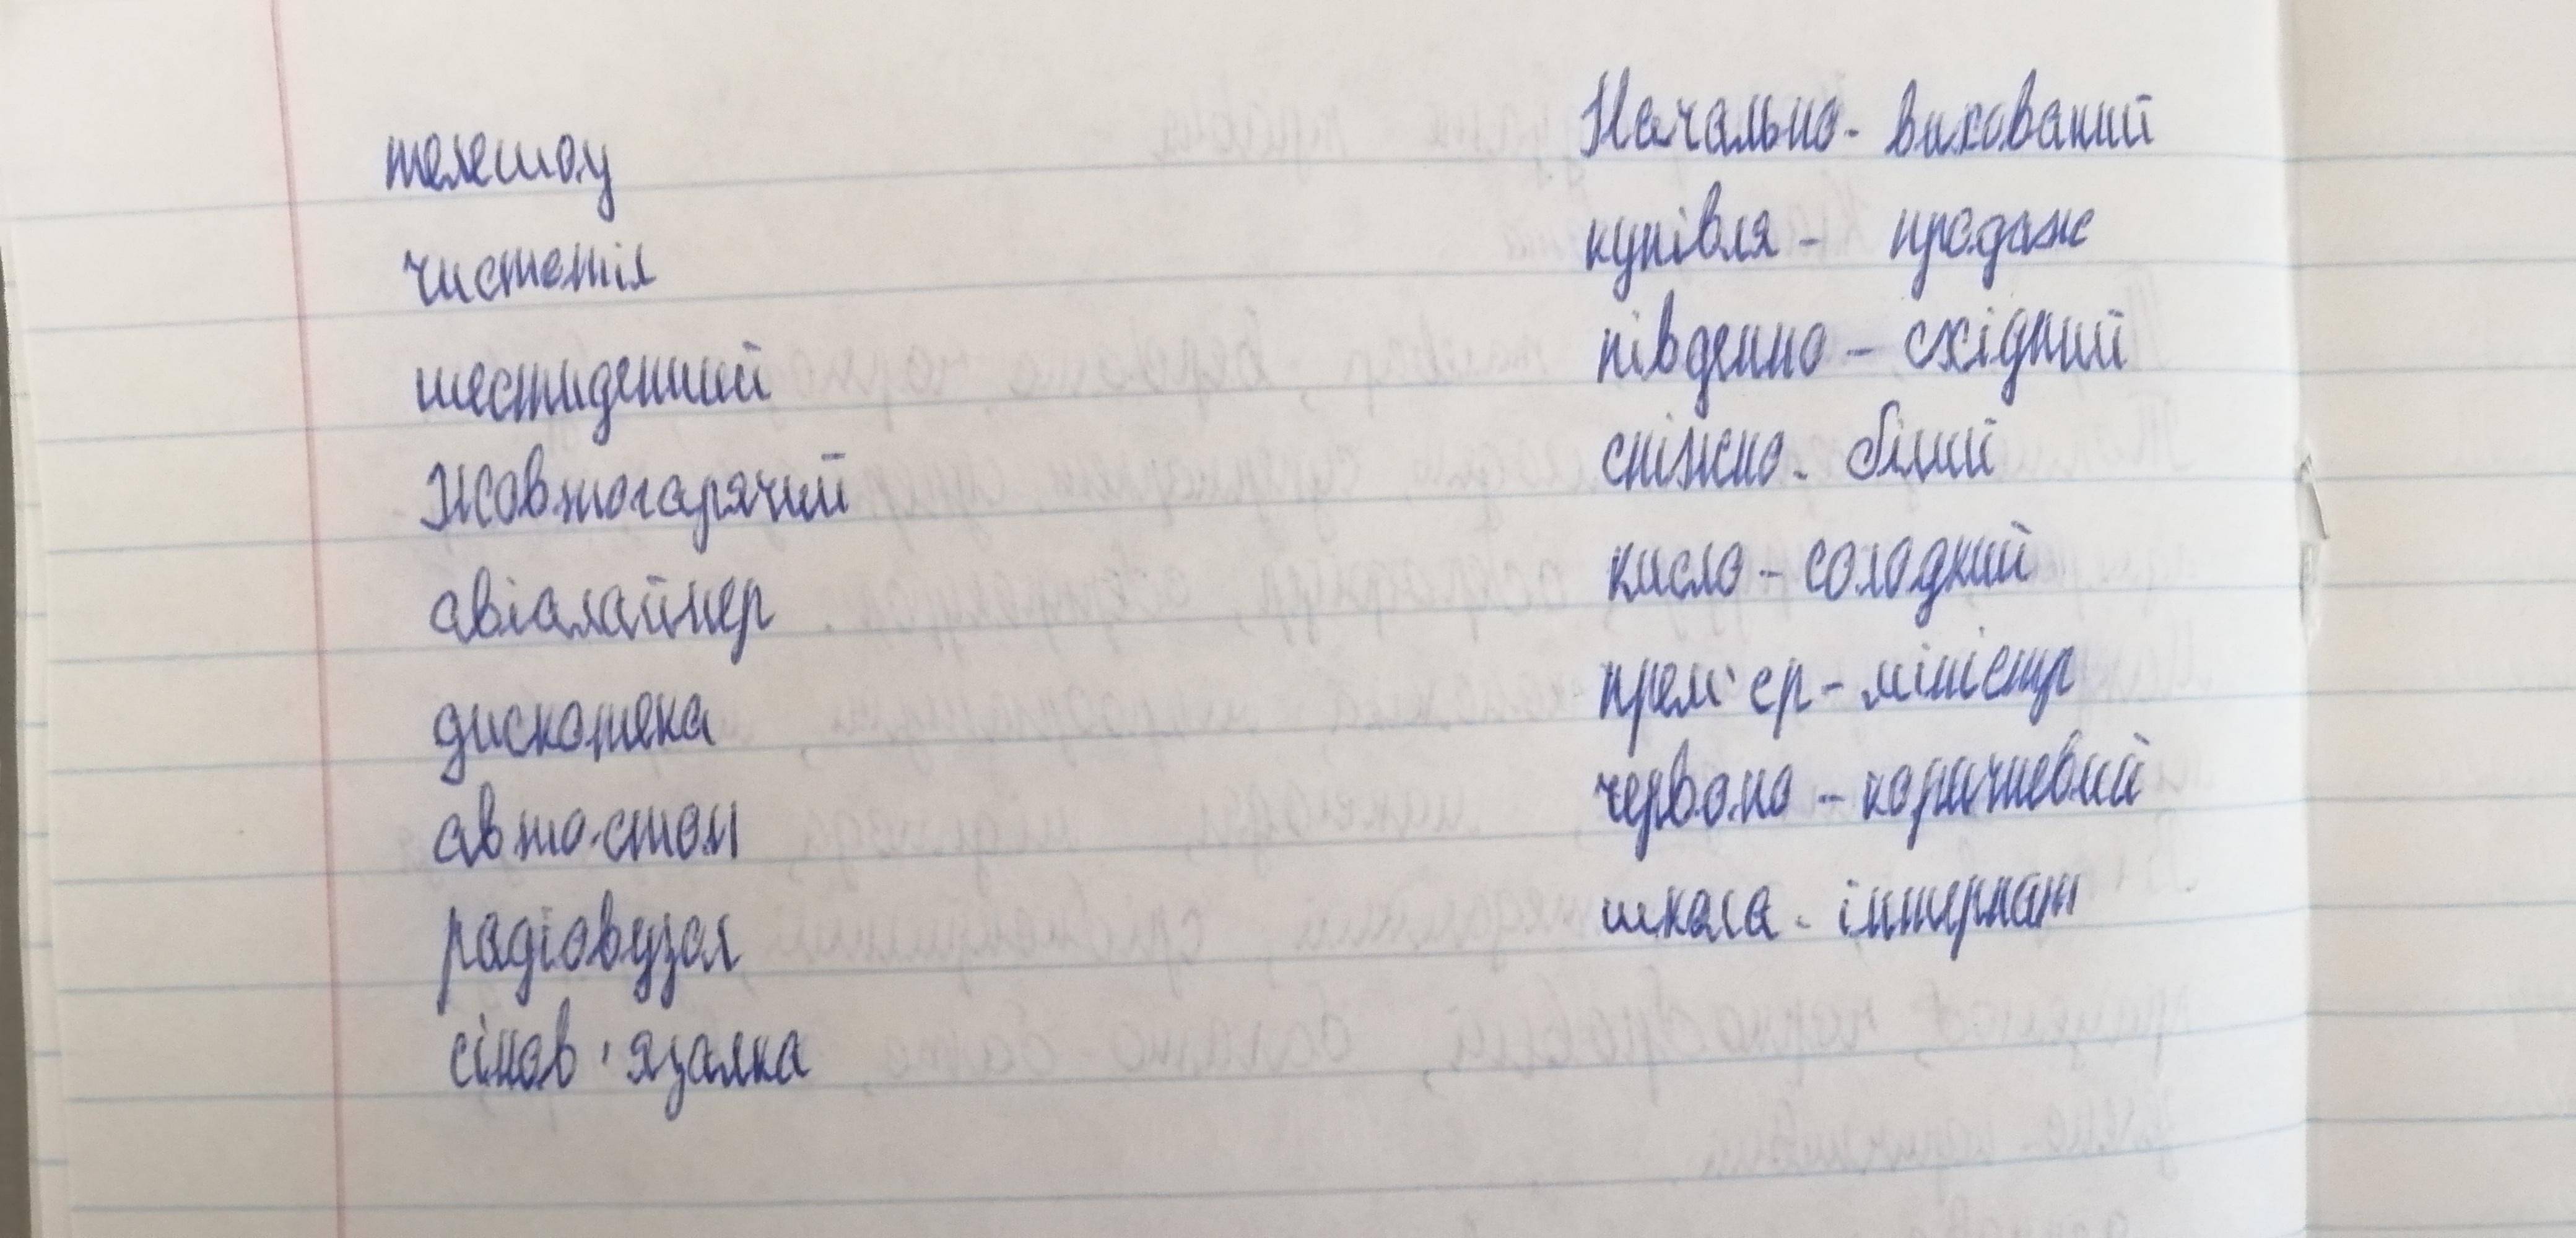 телешоу
чистотіл
шестиденний
Жовтогарячий
авіалайнер
дискотека
автостоп
радіовузол
сінов'язалка
Начально - вихований
купівля - продаж
південно - східний
сніжно - білий
кисло - солодкий
прем'єр - міністр
червоно - коричневий
школа - інтернат